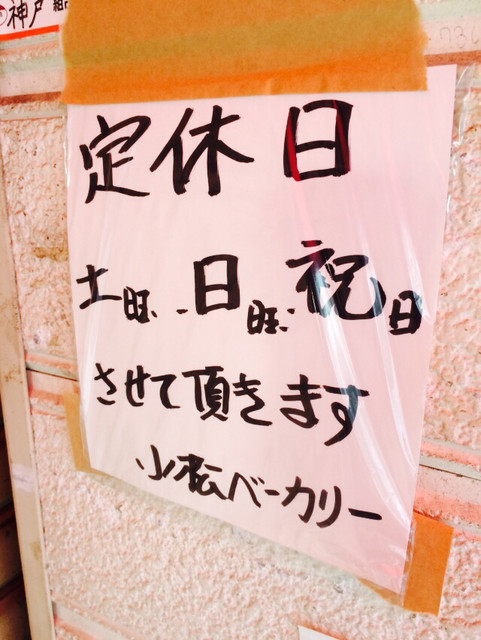 神戸
定休日
土旺、日旺、祝日
させて頂きます
小松ベーカリー